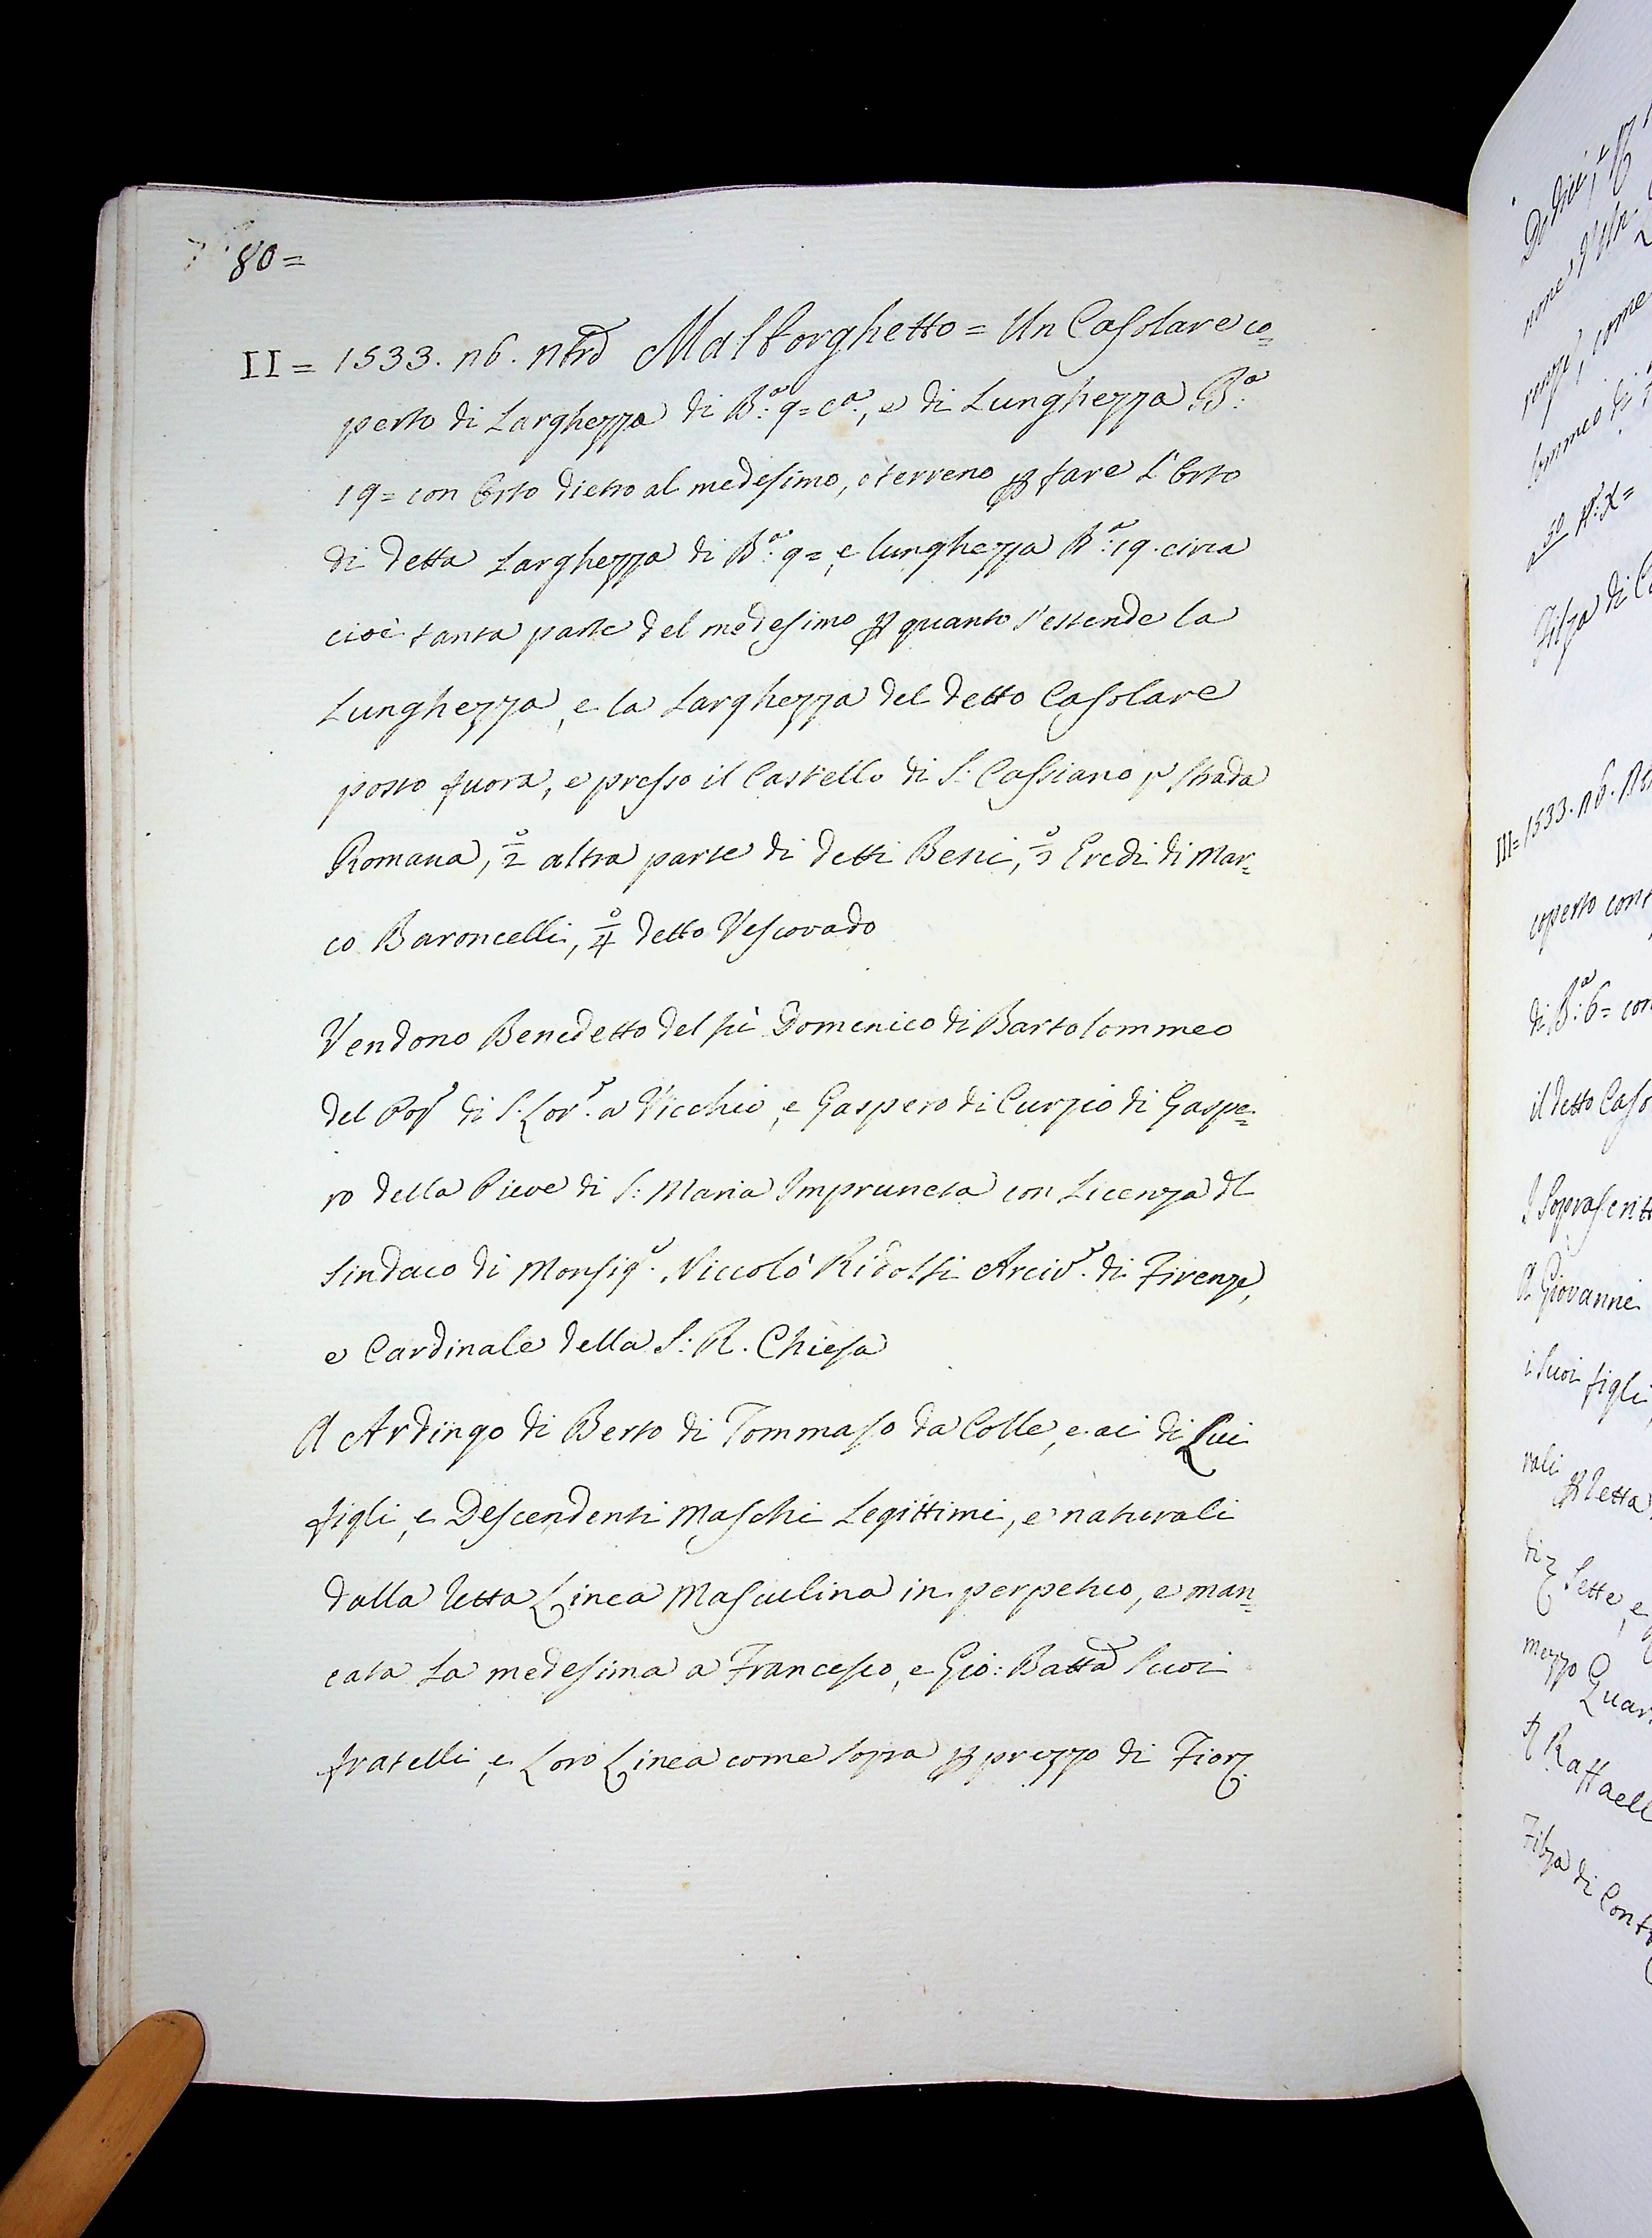 80=
II = 1533. 16. 9brê Malborghetto = Un Casolare co=
perto di Larghezza di B.ª 9= cª., e di Lunghezza B.ª
19= con Orto dietro al medesimo, o terreno p fare l'Orto
di detta Larghezza di B.ª 9=, e lunghezza B.ª 19. circa
cioè tanta parte del medesimo p quanto s'estende la
Lunghezza, e la Larghezza del detto Casolare
posto fuora, e presso il Castello di S: Cassiano pº Strada
Romana, 2º altra parte di detti Beni, 3º Eredi di Mar=
co Baroncelli, 4º detto Vescovado
Vendono Benedetto del fù Domenico di Bartolommeo
del Popº di S. Lorº. a Vicchio, e Gaspero di Curzio di Gaspe=
ro della Pieve di S: Maria Impruneta con Licenza dl
Sindaco di Monsigr. Niccolò Ridolfi Arcivº. di Firenze,
e Cardinale della S: R. Chiesa
A Ardingo di Berto di Tommaso da Colle, e ai di Lui
figli, e Descendenti Maschi Legittimi, e naturali
dalla retta Linea Masculina in perpetuo, e man=
cata la medesima a Francesco, e Gio: Batta Suoi
fratelli, e Loro Linea come sopra p prezzo di Fior.
none
come
III= 1533. 16.
coperto con
di B.ª 6= con
il detto Caso
I Soprascritt
A Giovanni
i Suoi figli
rali p retta
di Sette, e
mezzo Quar
Raffaell
Filza di Cont